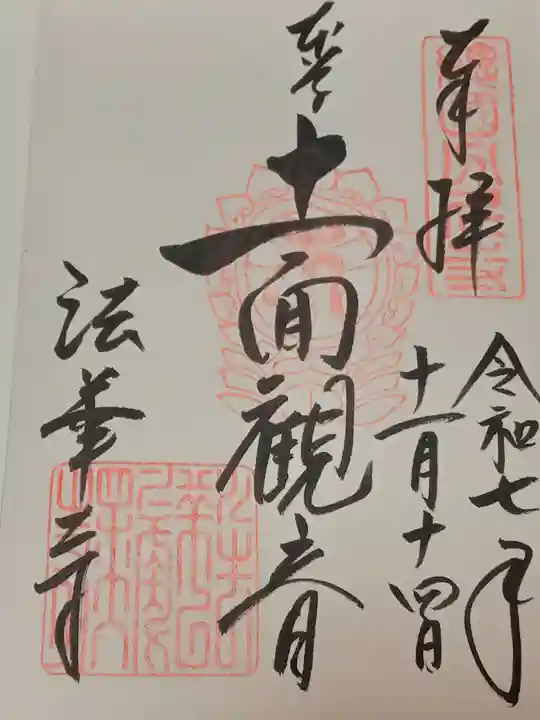 奉拝
令和七年
十一月十四日
本尊
十一面観音
法華寺